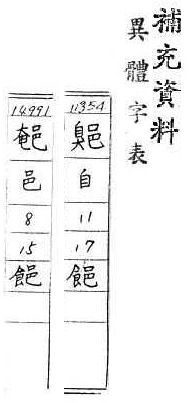 補充資料
異體字表
11354
自
11
17
14991
邑
8
15